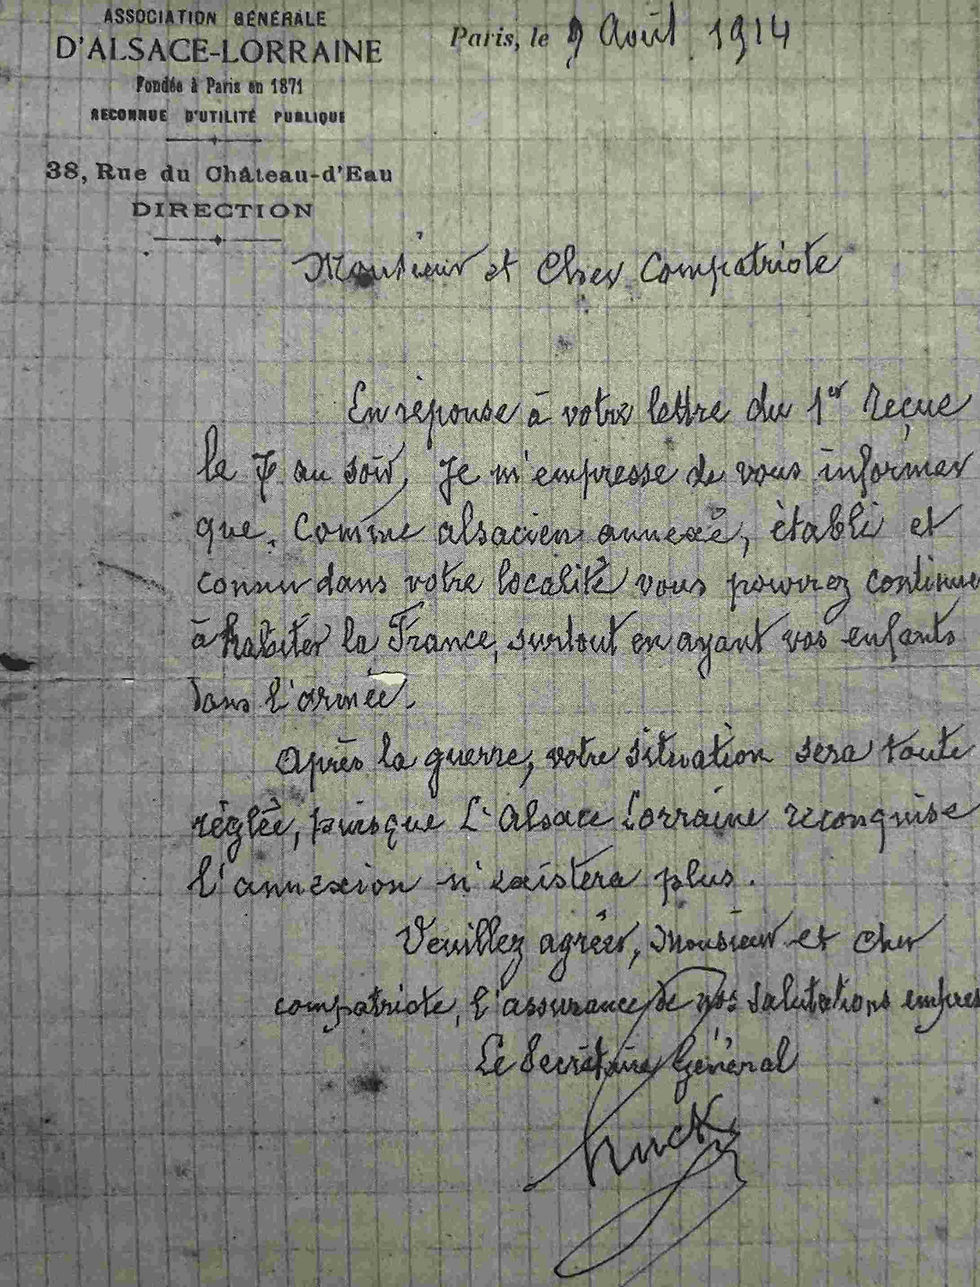 ASSOCIATION GÉNÉRALE
D'ALSACE-LORRAINE
Fondée à Paris en 1871
RECONNUE D'UTILITÉ PUBLIQUE
38, Rue du Château-d'Eau
DIRECTION
Paris, le 9 Août 1914
Monsieur et Cher Compatriote
En réponse à votre lettre du 1er reçue
le 7 au soir, Je m'empresse de vous informer
que, comme alsacien annexé, établi et
connu dans votre localité vous pourrez continuer
à habiter la France, surtout en ayant vos enfants
dans l'armée.
Après la guerre, votre situation sera toute
réglée, puisque L'Alsace Lorraine reconquise
l'annexion n'existera plus.
Veuillez agréer, Monsieur et cher
compatriote, l'assurance de nos salutations empres
Le Secrétaire Général